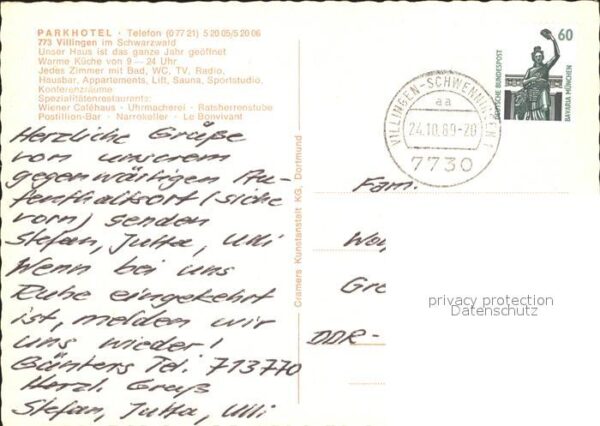 PARKHOTEL · Telefon (07721) 52005/52006
773 Villingen im Schwarzwald
Unser Haus ist das ganze Jahr geöffnet
Warme Küche von 9—24 Uhr
Jedes Zimmer mit Bad, WC, TV, Radio,
Hausbar, Appartements, Lift, Sauna, Sportstudio.
Konferenzräume
Spezialitätenrestaurants:
Wiener Caféhaus · Uhrmacherei · Ratsherrenstube
Postillion-Bar · Narrokeller · Le Bonvivant
Herzliche Grüße
von unserem
gegenwärtigen Au-
fenthaltsort (siehe
vorn) senden
Stefan, Jutta, Ulli
Wenn bei uns
Ruhe eingekehrt
ist, melden wir
uns wieder!
Günters Tel. 713770
Herzl. Gruß
Stefan, Jutta, Ulli
Cramers Kunstanstalt KG, Dortmund
VILLINGEN-SCHWENNINGEN 1
aa
24.10.89-20
7730
60
DEUTSCHE BUNDESPOST
BAVARIA MÜNCHEN
Fam.
Gre
DDR-
privacy protection
Datenschutz